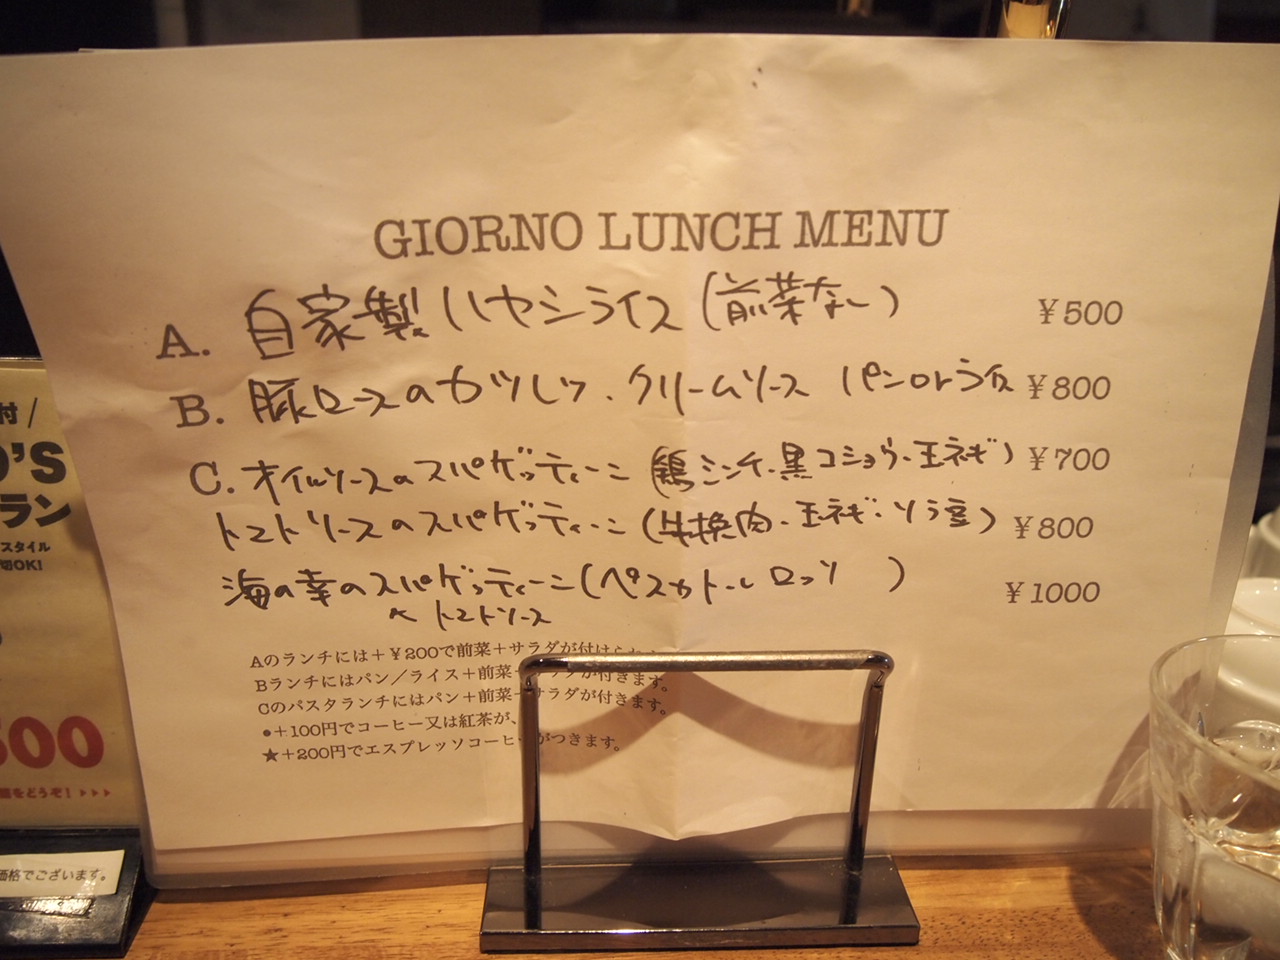 GIORNO LUNCH MENU
A. 自家製ハヤシライス(前菜なし) ¥500
B. 豚ロースのカツレツ.クリームソース パンorライス ¥800
C. オイルソースのスパゲッティーニ(鶏ミンチ、黒コショウ、玉ネギ) ¥700
トマトソースのスパゲッティーニ(牛挽肉、玉ネギ、ソラ豆) ¥800
海の幸のスパゲッティーニ(ペスカトーレ ロッソ ) ¥1000
トマトソース
Aのランチには+¥200で前菜+サラダが付けられ
Bランチにはパン/ライス+前菜+サラダが付きます。
Cのパスタランチにはパン+前菜+サラダが付きます。
●+100円でコーヒー又は紅茶が、
★+200円でエスプレッソコーヒーがつきます。
付/
'S
ラン
スタイル
切OK!
500
をどうぞ!▶▶▶
価格でございます。